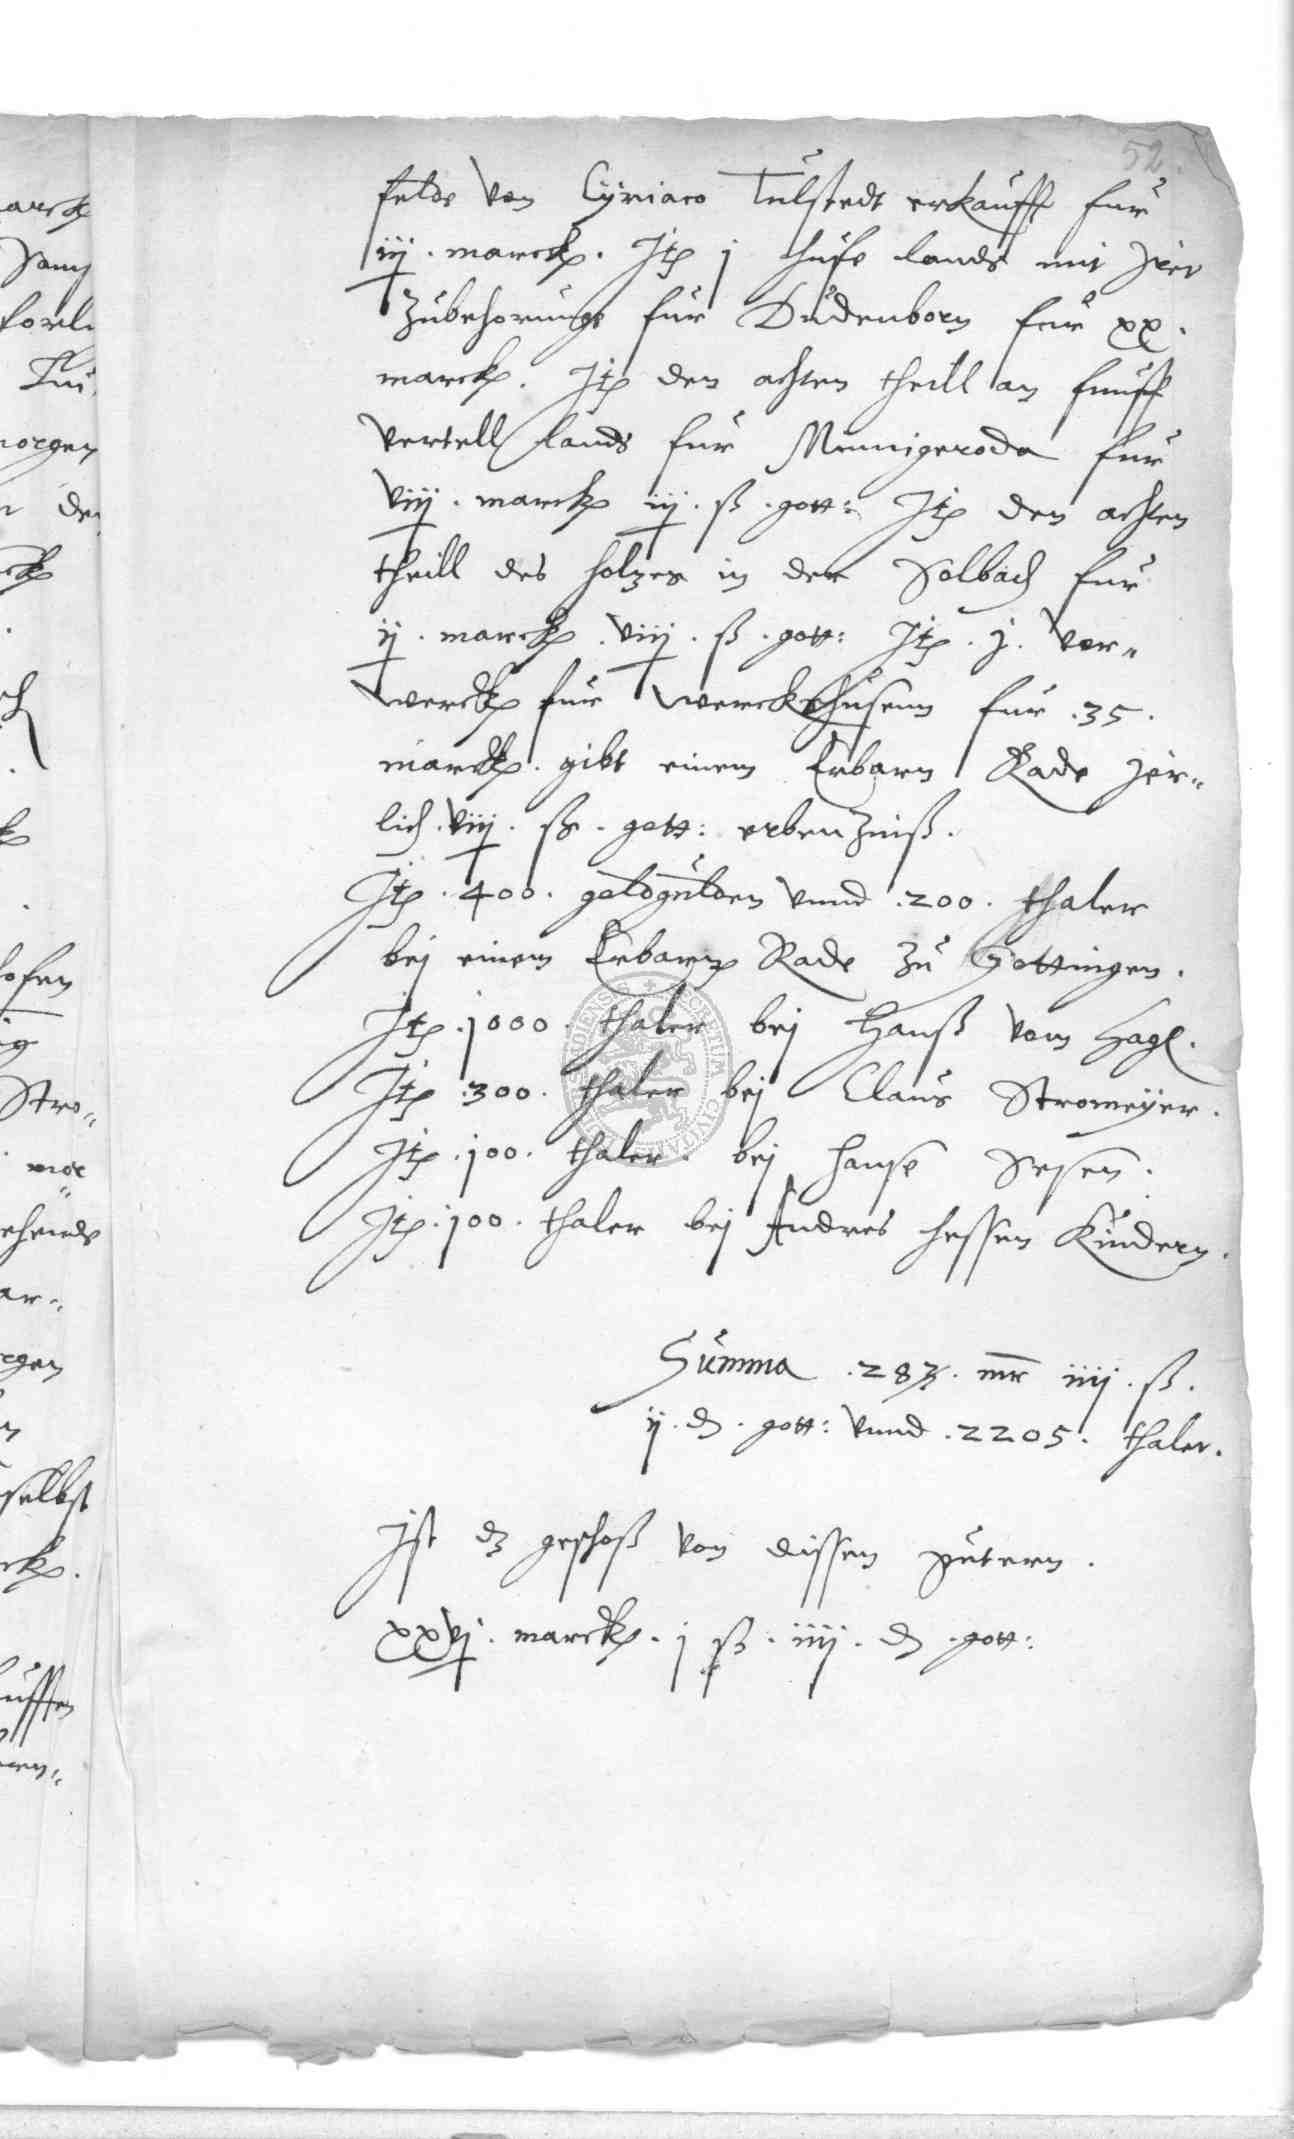 52
felde von Cyriaco Tulstedt erkaufft fur
iij . marck . Itz j hufe lands mit jrer
zubehorunge fur Dudenborn fur xx .
marck . Itz den achten theill an funff
vertell lands fur Mennigeroda fur
viij . marck iij . ß . gott : Itz den achten
theill des holzes in der Solbach fur
ij . marck . viij . ß . gott : Itz . j . vor„
werck fur werckshusenn fur . 35 .
marck . gibt einem Erbarn Rade jer„
lich . viij . ß . gott : erbenzinß .
Itz . 400 . goldgulden vnnd . 200 . thaler
bej einem Erbarn Rade zu Gottingen .
Itz . 1000 . thaler bej Hanß vom Hagē .
Itz . 300 . thaler bej Claus Stromeÿer .
Itz . 100 . thaler . bej Hanse Sesen .
Itz . 100 . thaler bej Andres Hessen Kindern .
Summa . 287 . mr iiij . ß .
ij . d . gott : vnnd . 2205 . thaler .
Ist dz geschoß von dissen gutern .
xxvj . marck . j ß . iiij . d . gott :